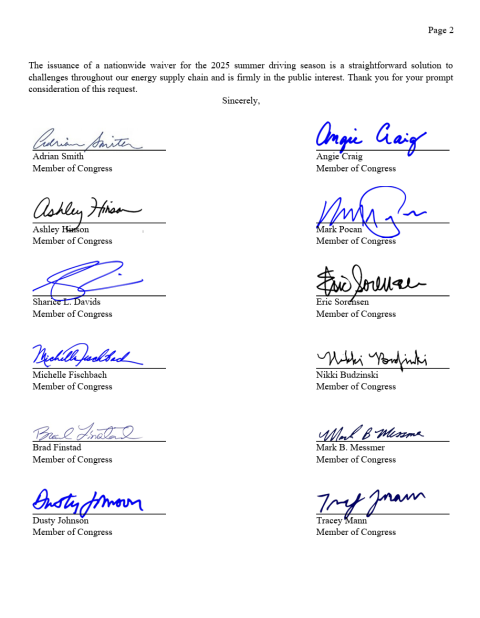 Page 2
The issuance of a nationwide waiver for the 2025 summer driving season is a straightforward solution to
challenges throughout our energy supply chain and is firmly in the public interest. Thank you for your prompt
consideration of this request.
Sincerely,
Adrian Smith
Angie Craig
Adrian Smith
Angie Craig
Member of Congress
Member of Congress
Ashley Hinson
Ashley Hinson
Mark Pocan
Member of Congress
Member of Congress
Eric Sorensen
Sharice L. Davids
Eric Sorensen
Member of Congress
Member of Congress
Michelle Fischbach
Nikki Budzinski
Michelle Fischbach
Nikki Budzinski
Member of Congress
Member of Congress
Brad Finstad
Mark B Messmer
Brad Finstad
Mark B. Messmer
Member of Congress
Member of Congress
Dusty Johnson
Tracey Mann
Dusty Johnson
Tracey Mann
Member of Congress
Member of Congress